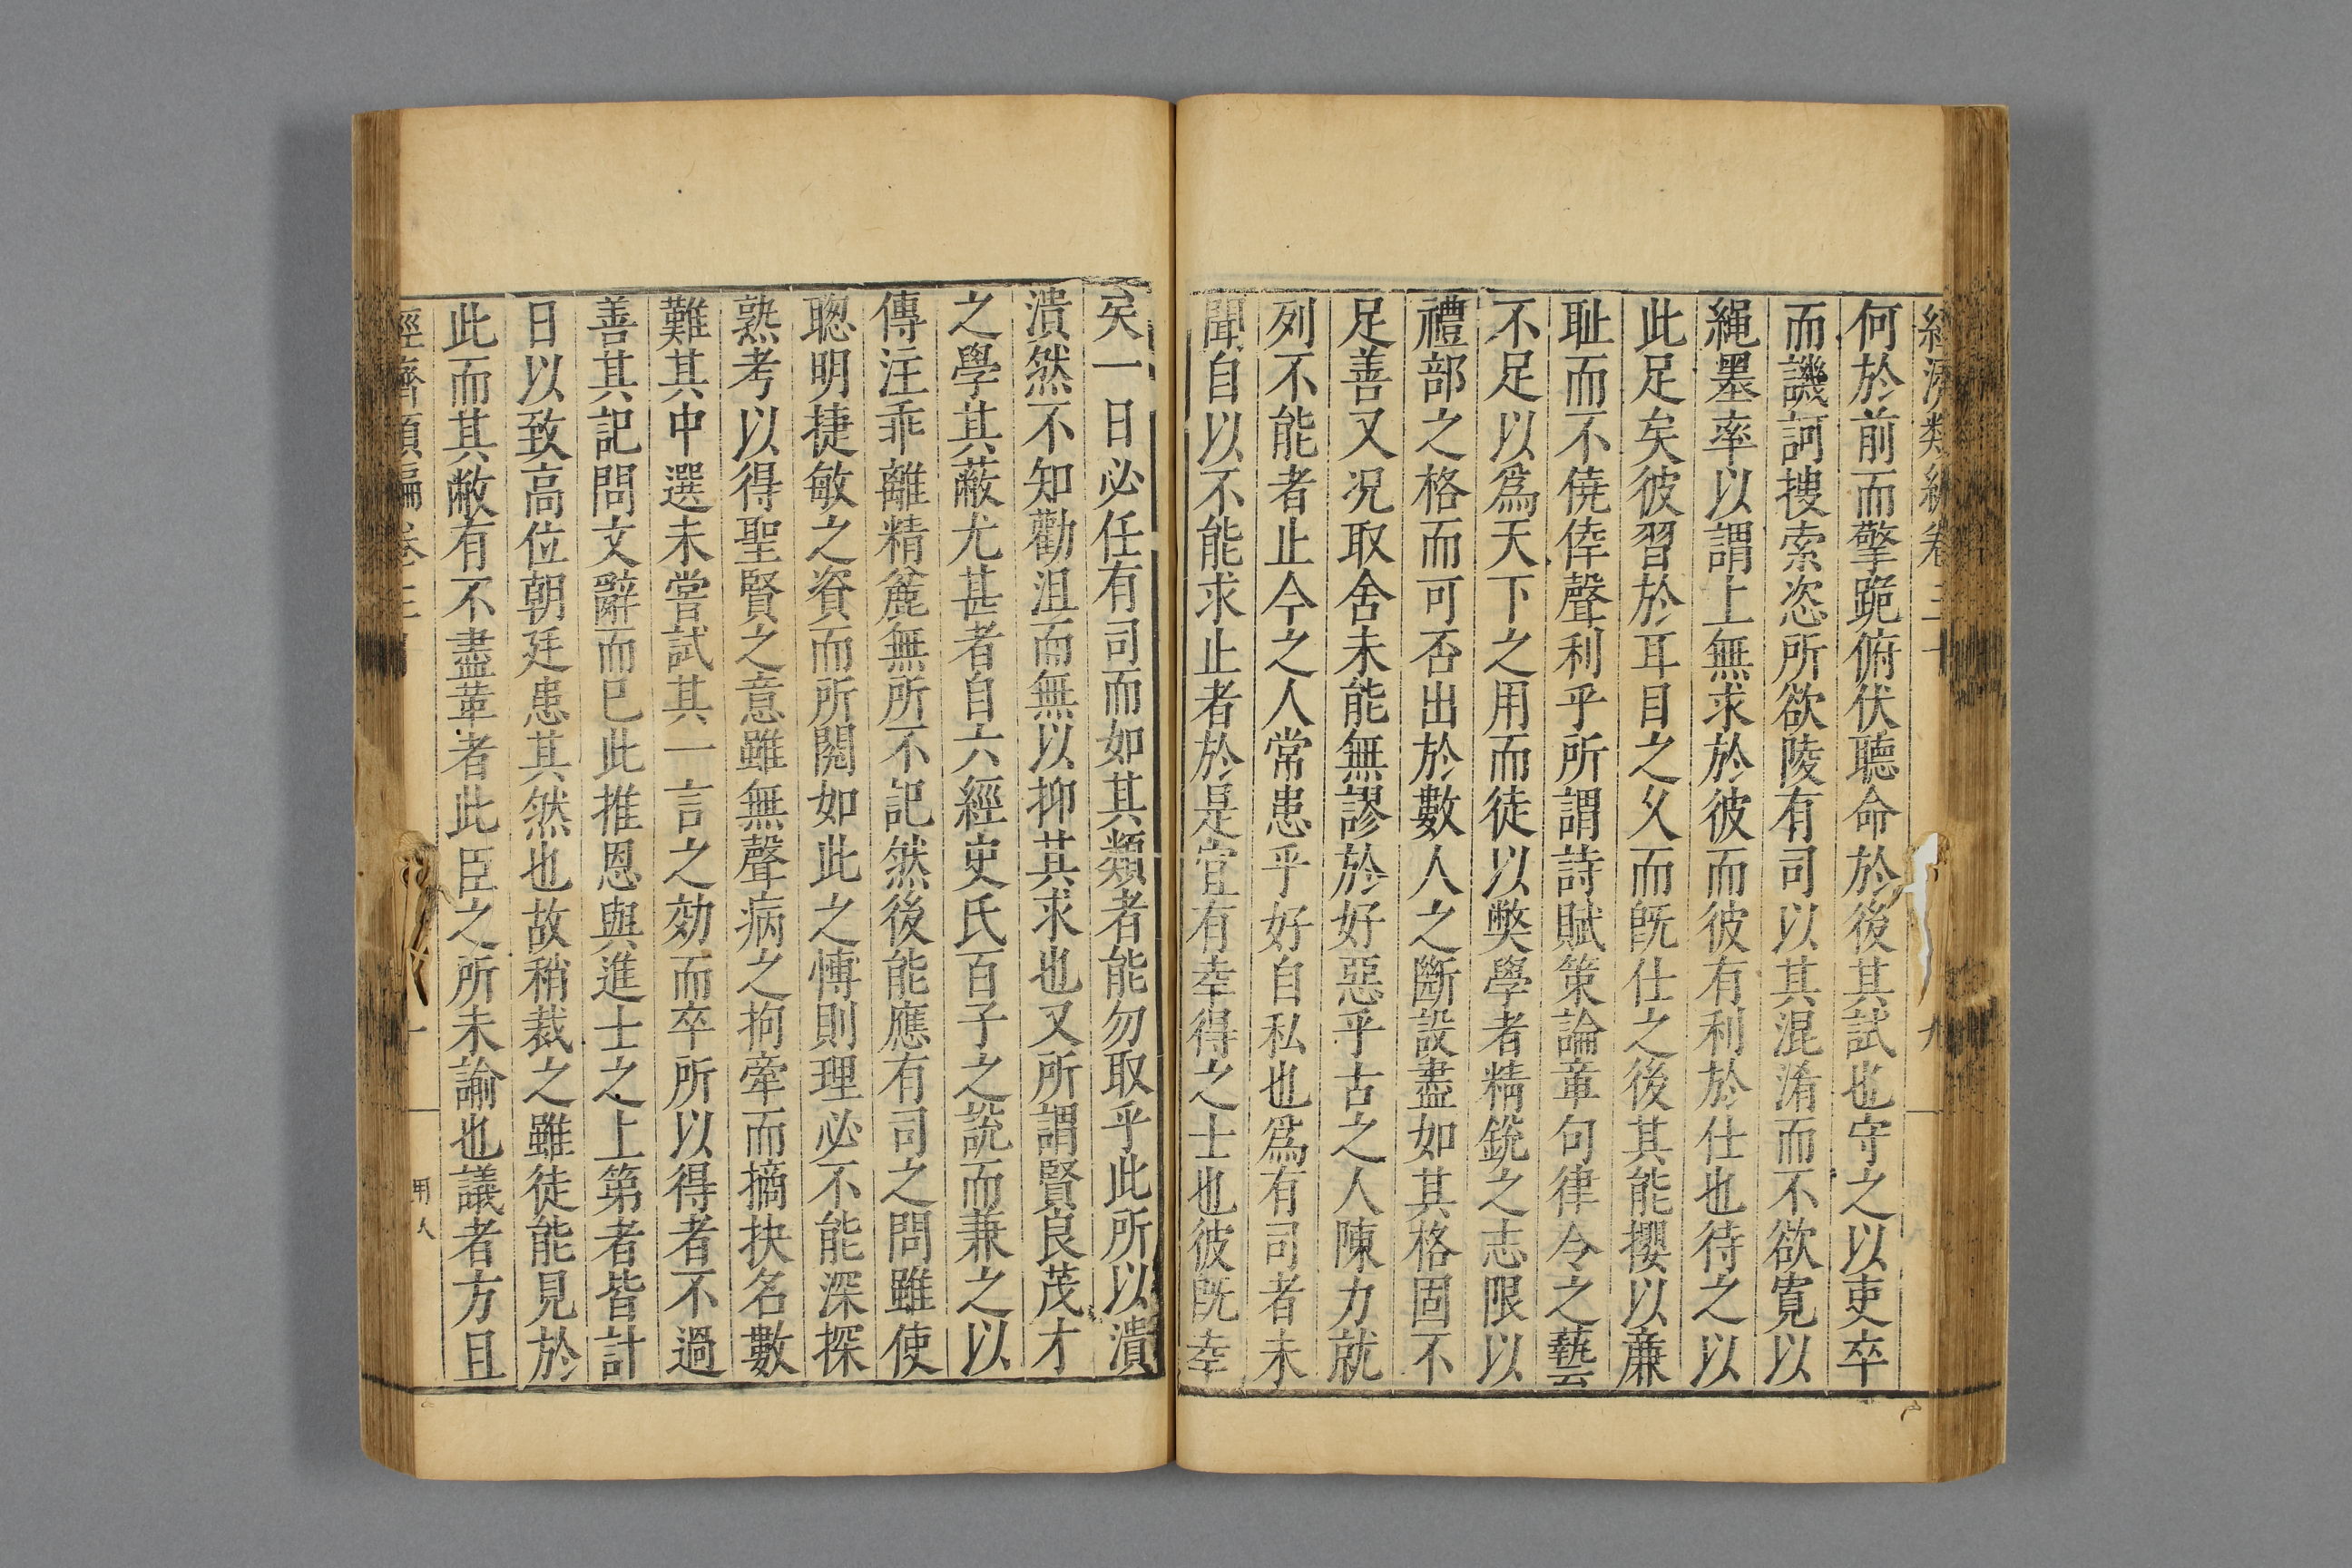 何於前而擎跪俯伏聽命於後其試也守之以吏卒
而譏訶搜索恣所欲陵有司以其混淆而不欲寬以
繩墨率以謂上無求於彼而彼有利於仕也待之以
此足矣彼習於耳目之久而旣仕之後其能攖以亷
耻而不僥倖聲利乎所謂詩賦策論章句律令之藝
不足以爲天下之用而徒以獘學者精銳之志限以
禮部之格而可否出於數人之斷設盡如其格固不
足善又况取舍未能無謬於好惡乎古之人陳力就
列不能者止今之人常患乎好自私也爲有司者未
聞自以不能求止者於是宜有幸得之士也彼旣幸
矣一日必任有司而如其類者能勿取乎此所以潰
潰然不知勸沮而無以抑其求也又所謂賢良茂才
之學其蔽尤甚者自六經史氏百子之說而兼之以
傳注乖離精麄無所不記然後能應有司之問雖使
聰明捷敏之資而所閱如此之慱則理必不能深探
熟考以得聖賢之意雖無聲病之拘牽而摘抉名數
難其中選未嘗試其一言之効而卒所以得者不過
善其記問文辭而已此推恩與進士之上第者皆計
日以致高位朝廷患其然也故稍裁之雖徒能見於
此而其敝有不盡革者此臣之所未諭也議者方且
經濟類編卷三
用人